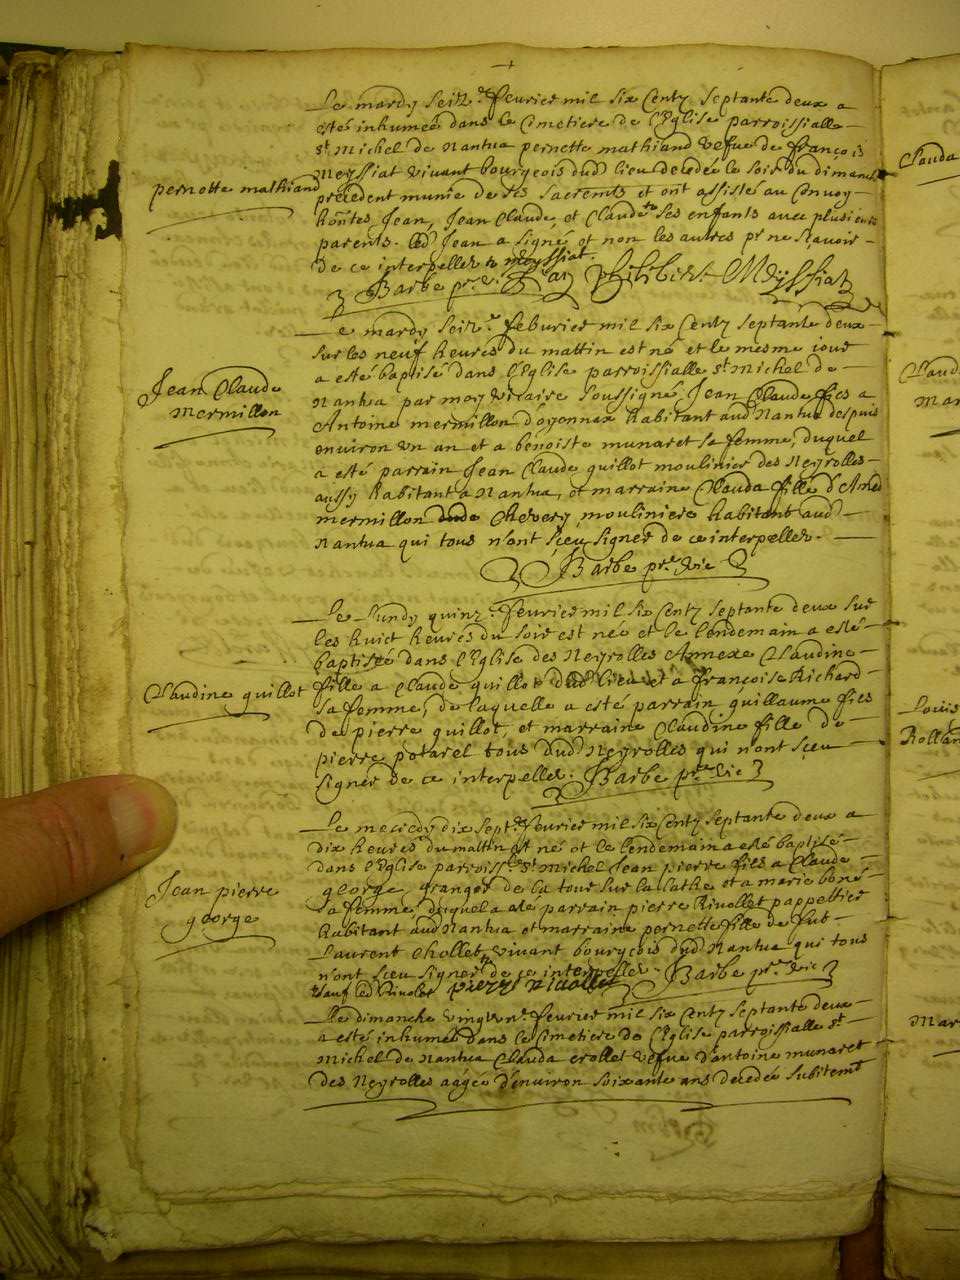 Le mardy seiz.e feurier mil six Centz septante deux a
esté inhumée dans le Cimetiere de l'Eglise parroissialle
st Michel de Nantua pernette mathiand vefue de françois
Meyssiat vivant bourgeois dud lieu decedée le soir du dimanche
pernette mathiand
précedent munie de ses sacremts et ont assisté au Convoy
honêtes Jean, Jean Claude, et Claude ses enfants avec plusieurs
parents. led Jean a signé et non les autres pr ne sçavoir
de ce interpellez meyssiat.
Barbe pr. vic Philibert Meyssiat
Le mardy seiz.e feburier mil six Centz septante deux
sur les neuf heures du mattin est né et le mesme jour
a esté baptisé dans l'Eglise parroissialle st Michel de
Jean Claude
mermillon
Nantua par moy vicaire soussigné, Jean Claude fils a
Antoine mermillon d'oyonnax habitant aud Nantua despuis
environ vn an et a benoiste munaret sa femme, duquel
a esté parrain Jean Claude guillot moulinier des Neyrolles
aussy habitant a Nantua, et marraine Clauda fille d'Amed
mermillon Chevery mouliniere habitant aud
Nantua qui tous n'ont sceu signer de ce interpellez.
Barbe pr. vic
Le Lundy quinz.e feurier mil six Centz septante deux sur
les huict heures du soir est née et le lendemain a esté
baptisée dans l'Eglise des Neyrolles Annexe Claudine
Claudine guillot
fille a Claude guillot dud lieu et a françoise Richard
sa femme, de laquelle a esté parrain guillaume fils
de pierre guillot, et marraine Claudine fille de
pierre potarel tous dud Neyrolles qui n'ont sceu
signer de ce interpellez. Barbe pre vic
Le mecredy dix sept.e feurier mil six Centz septante deux a
dix heures du mattin est né et le lendemain a esté baptisé
dans l'Eglise parroiss.e st Michel Jean pierre fils a Claude
Jean pierre
george
george, granger de la tour sur la Cathe et a marie bone
sa femme, duquel a esté parrain pierre Rivollet pappettier
habitant aud Nantua et marraine pernette fille de fut
Laurent Chollet vivant bourgeois dud Nantua qui tous
n'ont sceu signer de ce interpellez. Barbe pr. vic
sauf led Rivolet pierre rivollet
Le dimanche vingt vn.e feurier mil six Centz septante deux
a esté inhumée dans le Cimetiere de l'Eglise parroissialle st
Michel de Nantua Clauda crollet vefue d'antoine munaret
des Neyrolles aagée d'environ soixante ans decedée subitemt
Clauda
Claud
Mar
Louis
Rollan
Mar